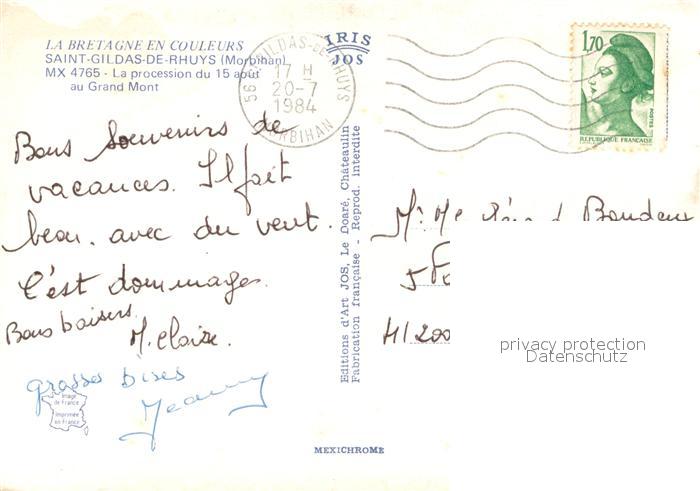 LA BRETAGNE EN COULEURS
SAINT-GILDAS-DE-RHUYS (Morbihan)
MX 4765 - La procession du 15 août
au Grand Mont
IRIS
JOS
56 GILDAS-DE-RHUYS
17 H
20-7
1984
MORBIHAN
1,70
POSTES
REPUBLIQUE FRANÇAISE
Bons souvenirs de
vacances. Il fait
beau. avec du vent.
C'est dommages.
Bons baisers
M. Claire.
grosses bises
Jeanny
Image
de France
Imprimée
en France
Editions d'Art JOS, Le Doaré, Châteaulin
Fabrication française - Reprod. interdite
MEXICHROME
Mr Me Baudeur
5
41200
privacy protection
Datenschutz